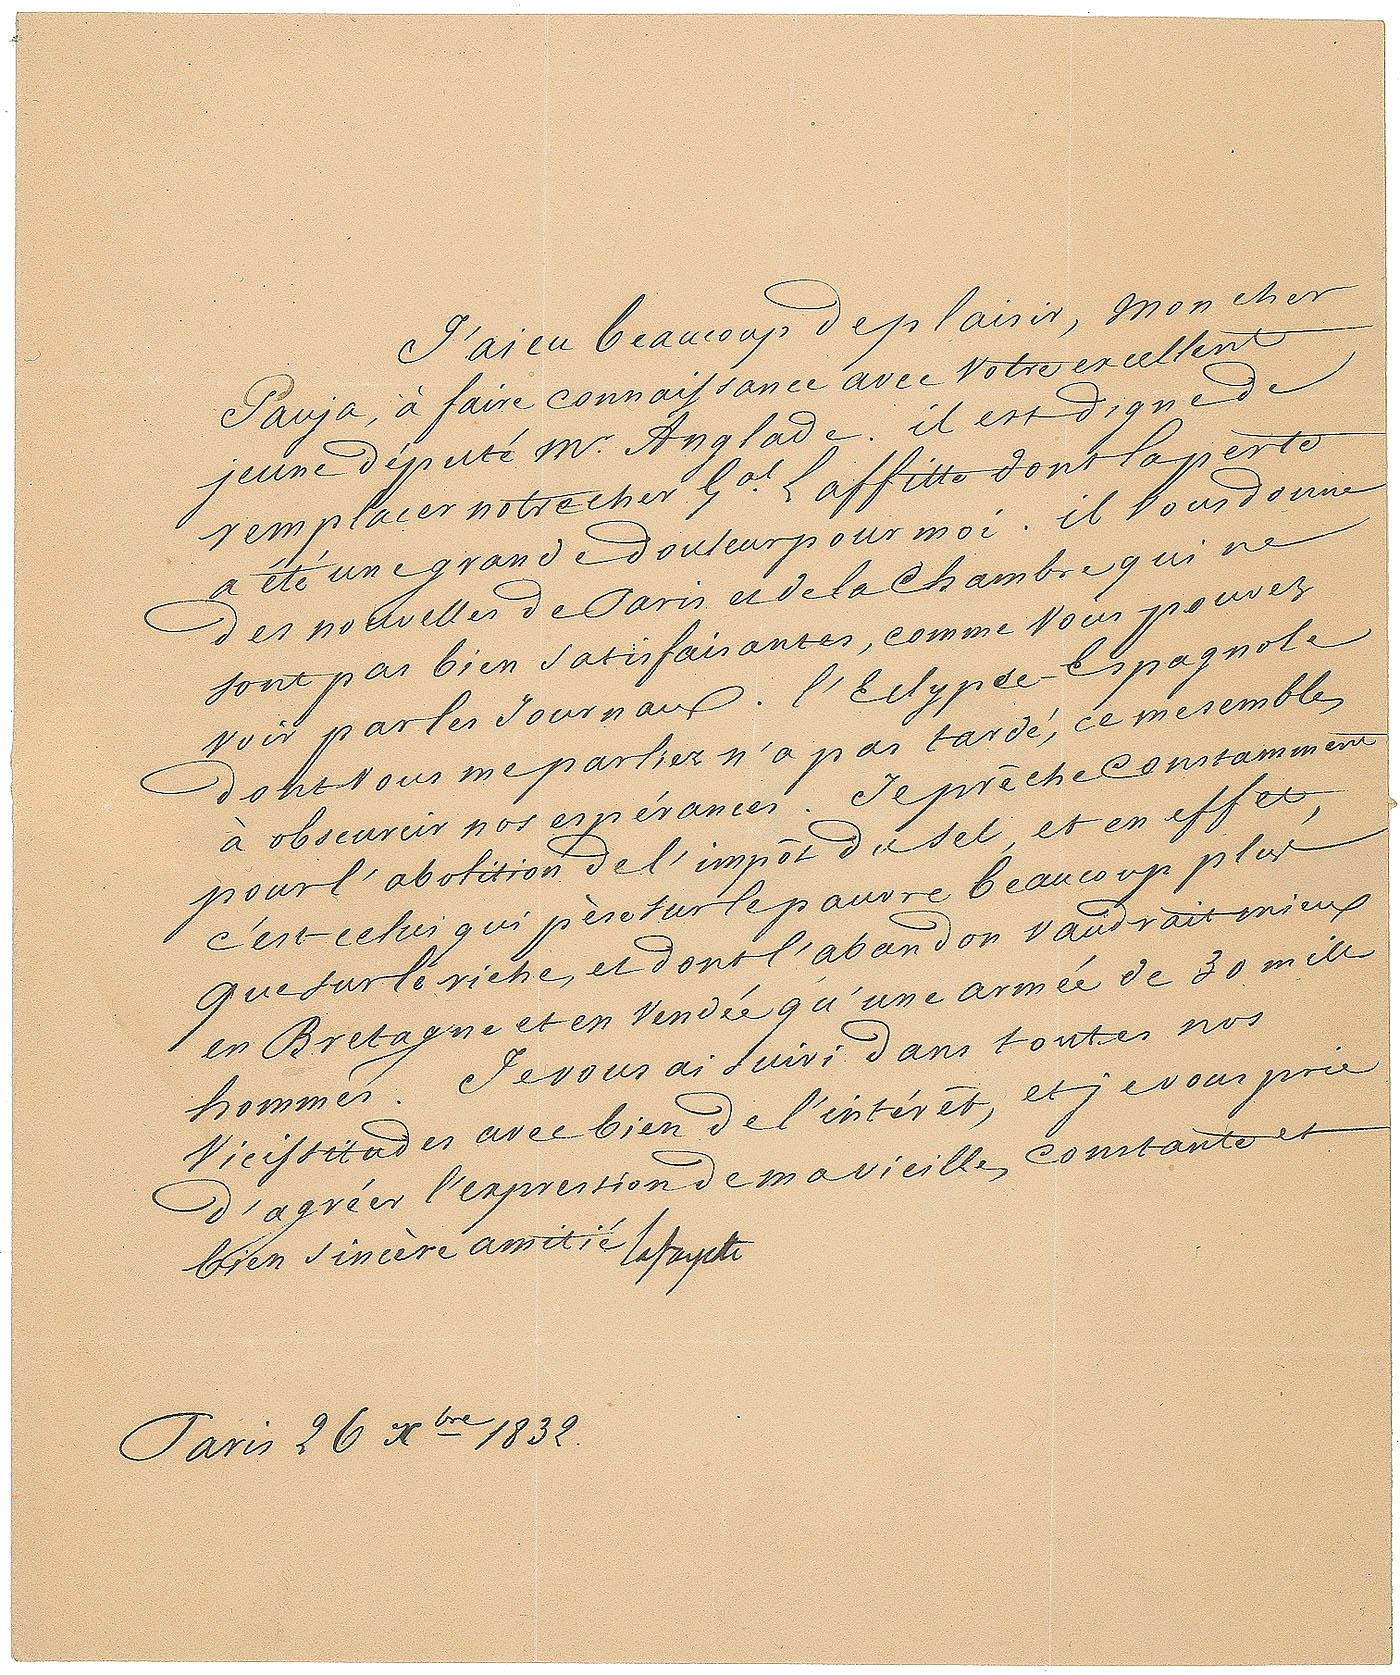 J'ai eu beaucoup de plaisir, mon cher
Pauja, à faire connaissance avec votre excellent
jeune député Mr. Anglade. il est digne de
remplacer notre cher Gal. Laffitte dont la perte
a été une grande douleur pour moi. il vous donne
des nouvelles de Paris et de la Chambre qui ne
sont pas bien satisfaisantes, comme vous pouvez
voir par les Journaux. l'Eclypse Espagnole
dont vous me parliez n'a pas tardé, ce me semble,
à obscurcir nos espérances. Je prêche constamment
pour l'abolition de l'impôt du sel, et en effet,
c'est celui qui pèse sur le pauvre beaucoup plus
que sur le riche, et dont l'abandon vaudrait mieux
en Bretagne et en Vendée qu'une armée de 30 mille
hommes. Je vous ai suivi dans toutes nos
Vicissitudes avec bien de l'intérêt, et je vous prie
d'agréer l'expression de ma vieille, constante et
bien sincère amitié Lafayette
Paris 26 Xbre 1832.